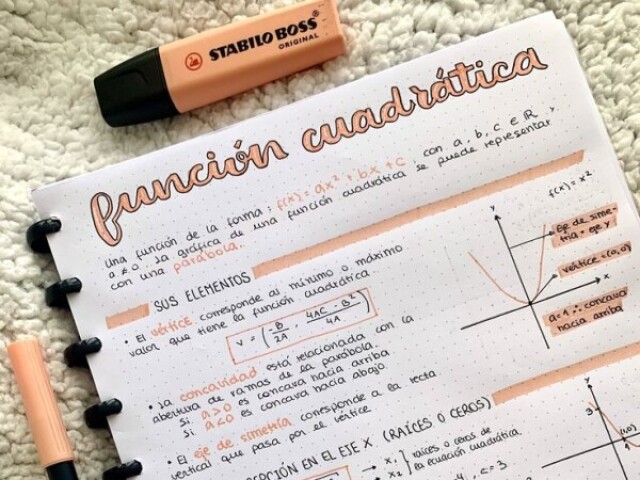 STABILO BOSS®
ORIGINAL
función cuadrática
Una función de la forma: f(x)= ax² + bx + c, con a, b, c ∈ ℝ, y
a ≠ 0. La gráfica de una función cuadrática se puede representar
con una parábola.
SUS ELEMENTOS
• El vértice corresponde al mínimo o máximo
valor que tiene la función cuadrática
V = (-B/2A, 4AC - B²/4A)
• La concavidad está relacionada con la
abertura de ramas de la parábola.
Si a>0 es concava hacia arriba
Si a<0 es concava hacia abajo.
• El eje de simetría corresponde a la recta
vertical que pasa por el vértice.
f(x) = x²
y
Eje de sime-
tría = eje y
vértice = (0,0)
x
a=1 ∴ concava
hacia arriba
EN EL EJE X (RAÍCES O CEROS)
x₁ raíces o ceros de
x₂ la ecuación cuadrática
c = 3
3